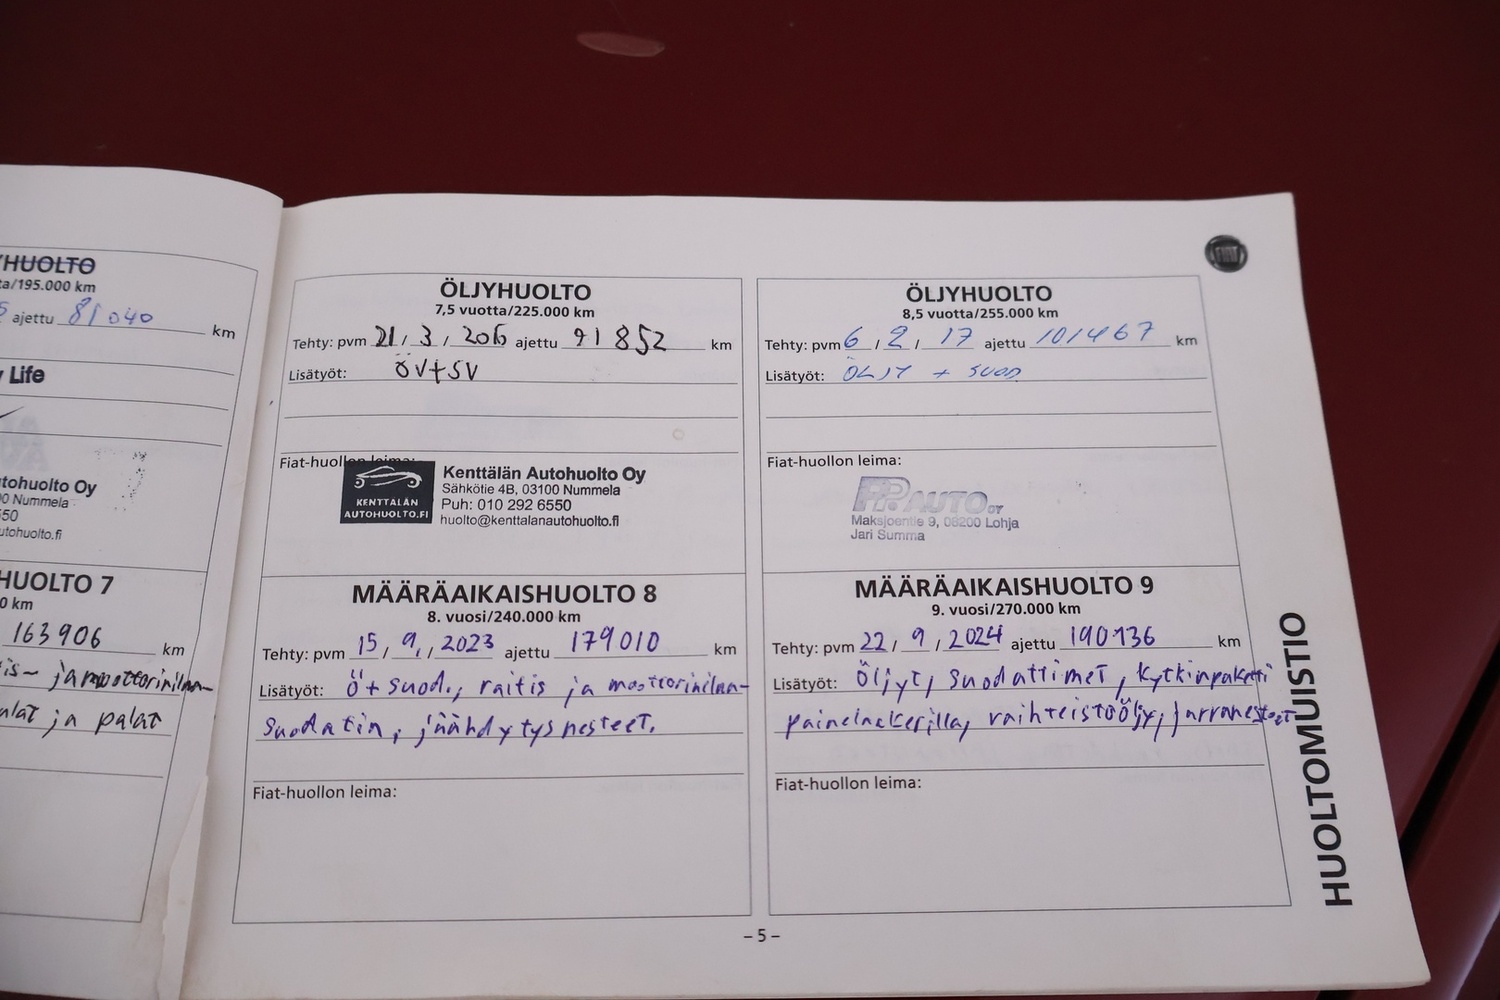 HUOLTO
ta/195.000 km
5 ajettu 81 040 km
Life
tohuolto Oy
00 Nummela
550
utohuolto.fi
HUOLTO 7
0 km
163906 km
is- ja moottorinilan-
alat ja palat
ÖLJYHUOLTO
7,5 vuotta/225.000 km
Tehty: pvm 21 / 3 / 2016 ajettu 91852 km
Lisätyöt: ÖV+SV
Fiat-huollon leima:
KENTTÄLÄN
AUTOHUOLTO.FI
Kenttälän Autohuolto Oy
Sähkötie 4B, 03100 Nummela
Puh: 010 292 6550
huolto@kenttalanautohuolto.fi
MÄÄRÄAIKAISHUOLTO 8
8. vuosi/240.000 km
Tehty: pvm 15 / 9 / 2023 ajettu 179010 km
Lisätyöt: Ö + suod., raitis ja moottorinilan-
suodatin, jäähdytysnesteet.
Fiat-huollon leima:
ÖLJYHUOLTO
8,5 vuotta/255.000 km
Tehty: pvm 6 / 2 / 17 ajettu 101467 km
Lisätyöt: ÖLJY + SUOD
Fiat-huollon leima:
PP AUTO OY
Maksjoentie 9, 08200 Lohja
Jari Summa
MÄÄRÄAIKAISHUOLTO 9
9. vuosi/270.000 km
Tehty: pvm 22 / 9 / 2024 ajettu 190136 km
Lisätyöt: Öljyt, suodattimet, kytkinpaketti
painelaakerilla, vaihteistoöljy, jarrunesteet
Fiat-huollon leima:
FIAT
HUOLTOMUISTIO
– 5 –